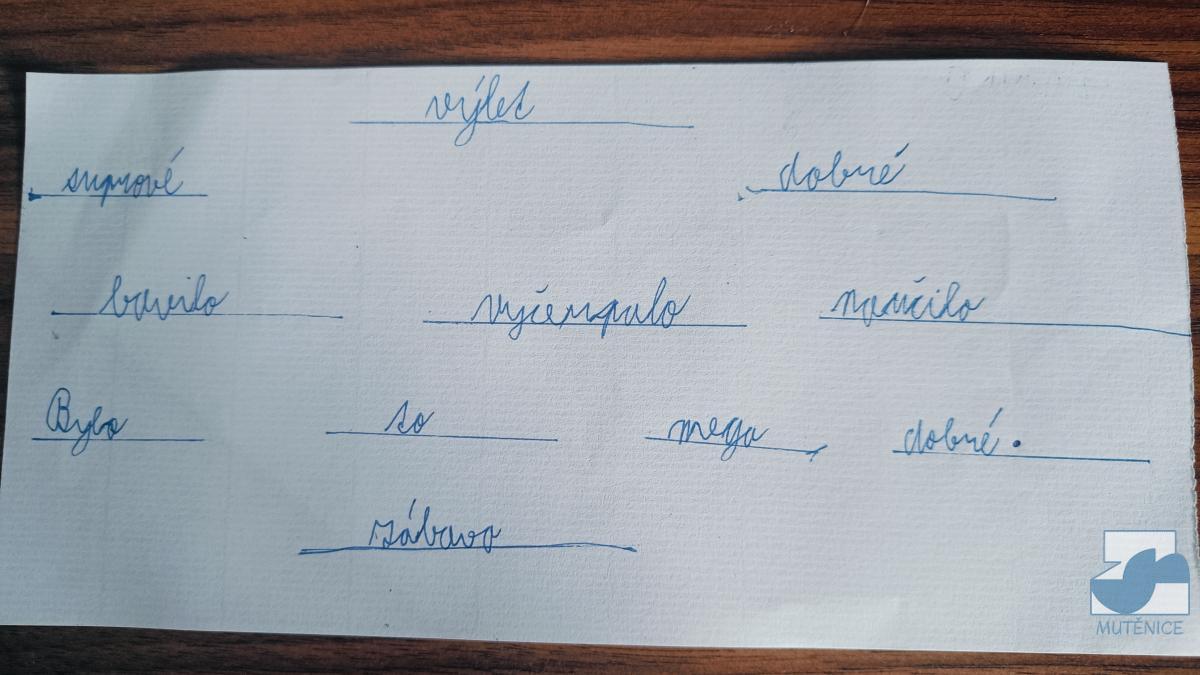 výlet
suprové dobré
bavilo vyčerpalo naučilo
Bylo to mega dobré.
zábava
MUTĚNICE